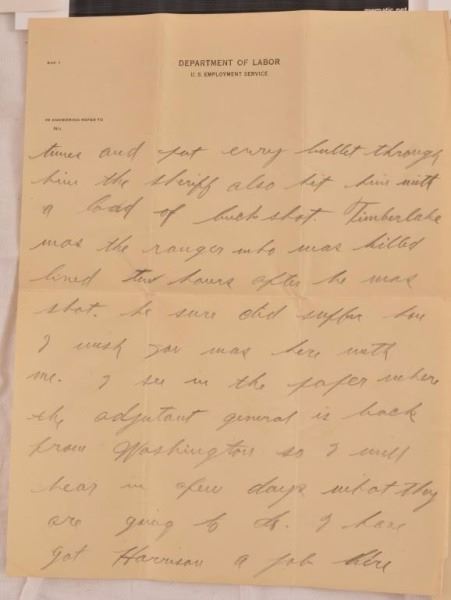 mematic.net
DEPARTMENT OF LABOR
U. S. EMPLOYMENT SERVICE
IN ANSWERING REFER TO
No.
times and put every bullet through
him the sheriff also hit him with
a load of buck shot. Timberlake
was the ranger who was killed
lived two hours after he was
shot. he sure did suffer
I wish you was here with
me. I see in the paper where
the adjutant general is back
from Washington so I will
hear in a few days what they
are going to do. I have
got Harrison a job here